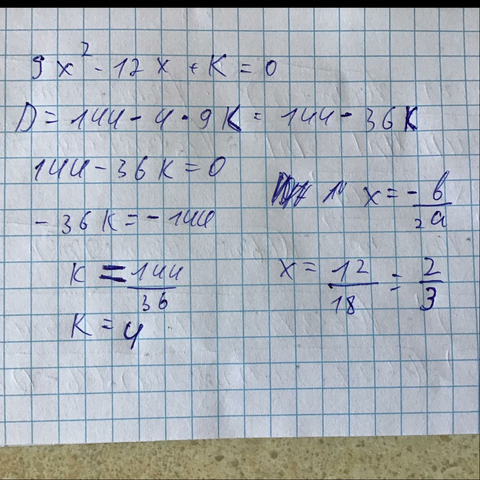 9x² - 12x + K = 0
D = 144 - 4 · 9K = 144 - 36K
144 - 36K = 0
- 36K = - 144
K = 144/36
K = 4
x = -b/2a
x = 12/18 = 2/3